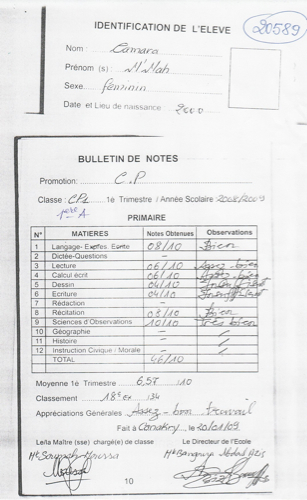 IDENTIFICATION DE L'ELEVE
20589
Nom : Camara
Prénom (s) : M'Mah
Sexe féminin
Date et Lieu de naissance 2000
BULLETIN DE NOTES
Promotion: C.P
Classe : CP1 1è Trimestre / Année Scolaire 2008/2009
1ère A
PRIMAIRE
N° MATIERES Notes Obtenues Observations
1 Langage- Expres. Ecrite 08/10 Bien
2 Dictée-Questions –
3 Lecture 06/10 Assez bien
4 Calcul écrit 06/10 Assez bien
5 Dessin 04/10 Insuffisant
6 Ecriture 04/10 Insuffisant
7 Rédaction –
8 Récitation 08/10 Bien
9 Sciences d'Observations 10/10 Très bien
10 Géographie –
11 Histoire –
12 Instruction Civique / Morale –
TOTAL 46/10
Moyenne 1è Trimestre 6,57 :10
Classement 18è ex :34
Appréciations Générales Assez - bon travail
Fait à Conakry, le /01/09
Le/la Maître (sse) chargé(e) de classe Le Directeur de l'Ecole
10